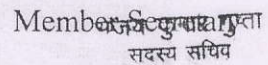 Member Secretary
संजय कुमार गुप्ता
सदस्य सचिव